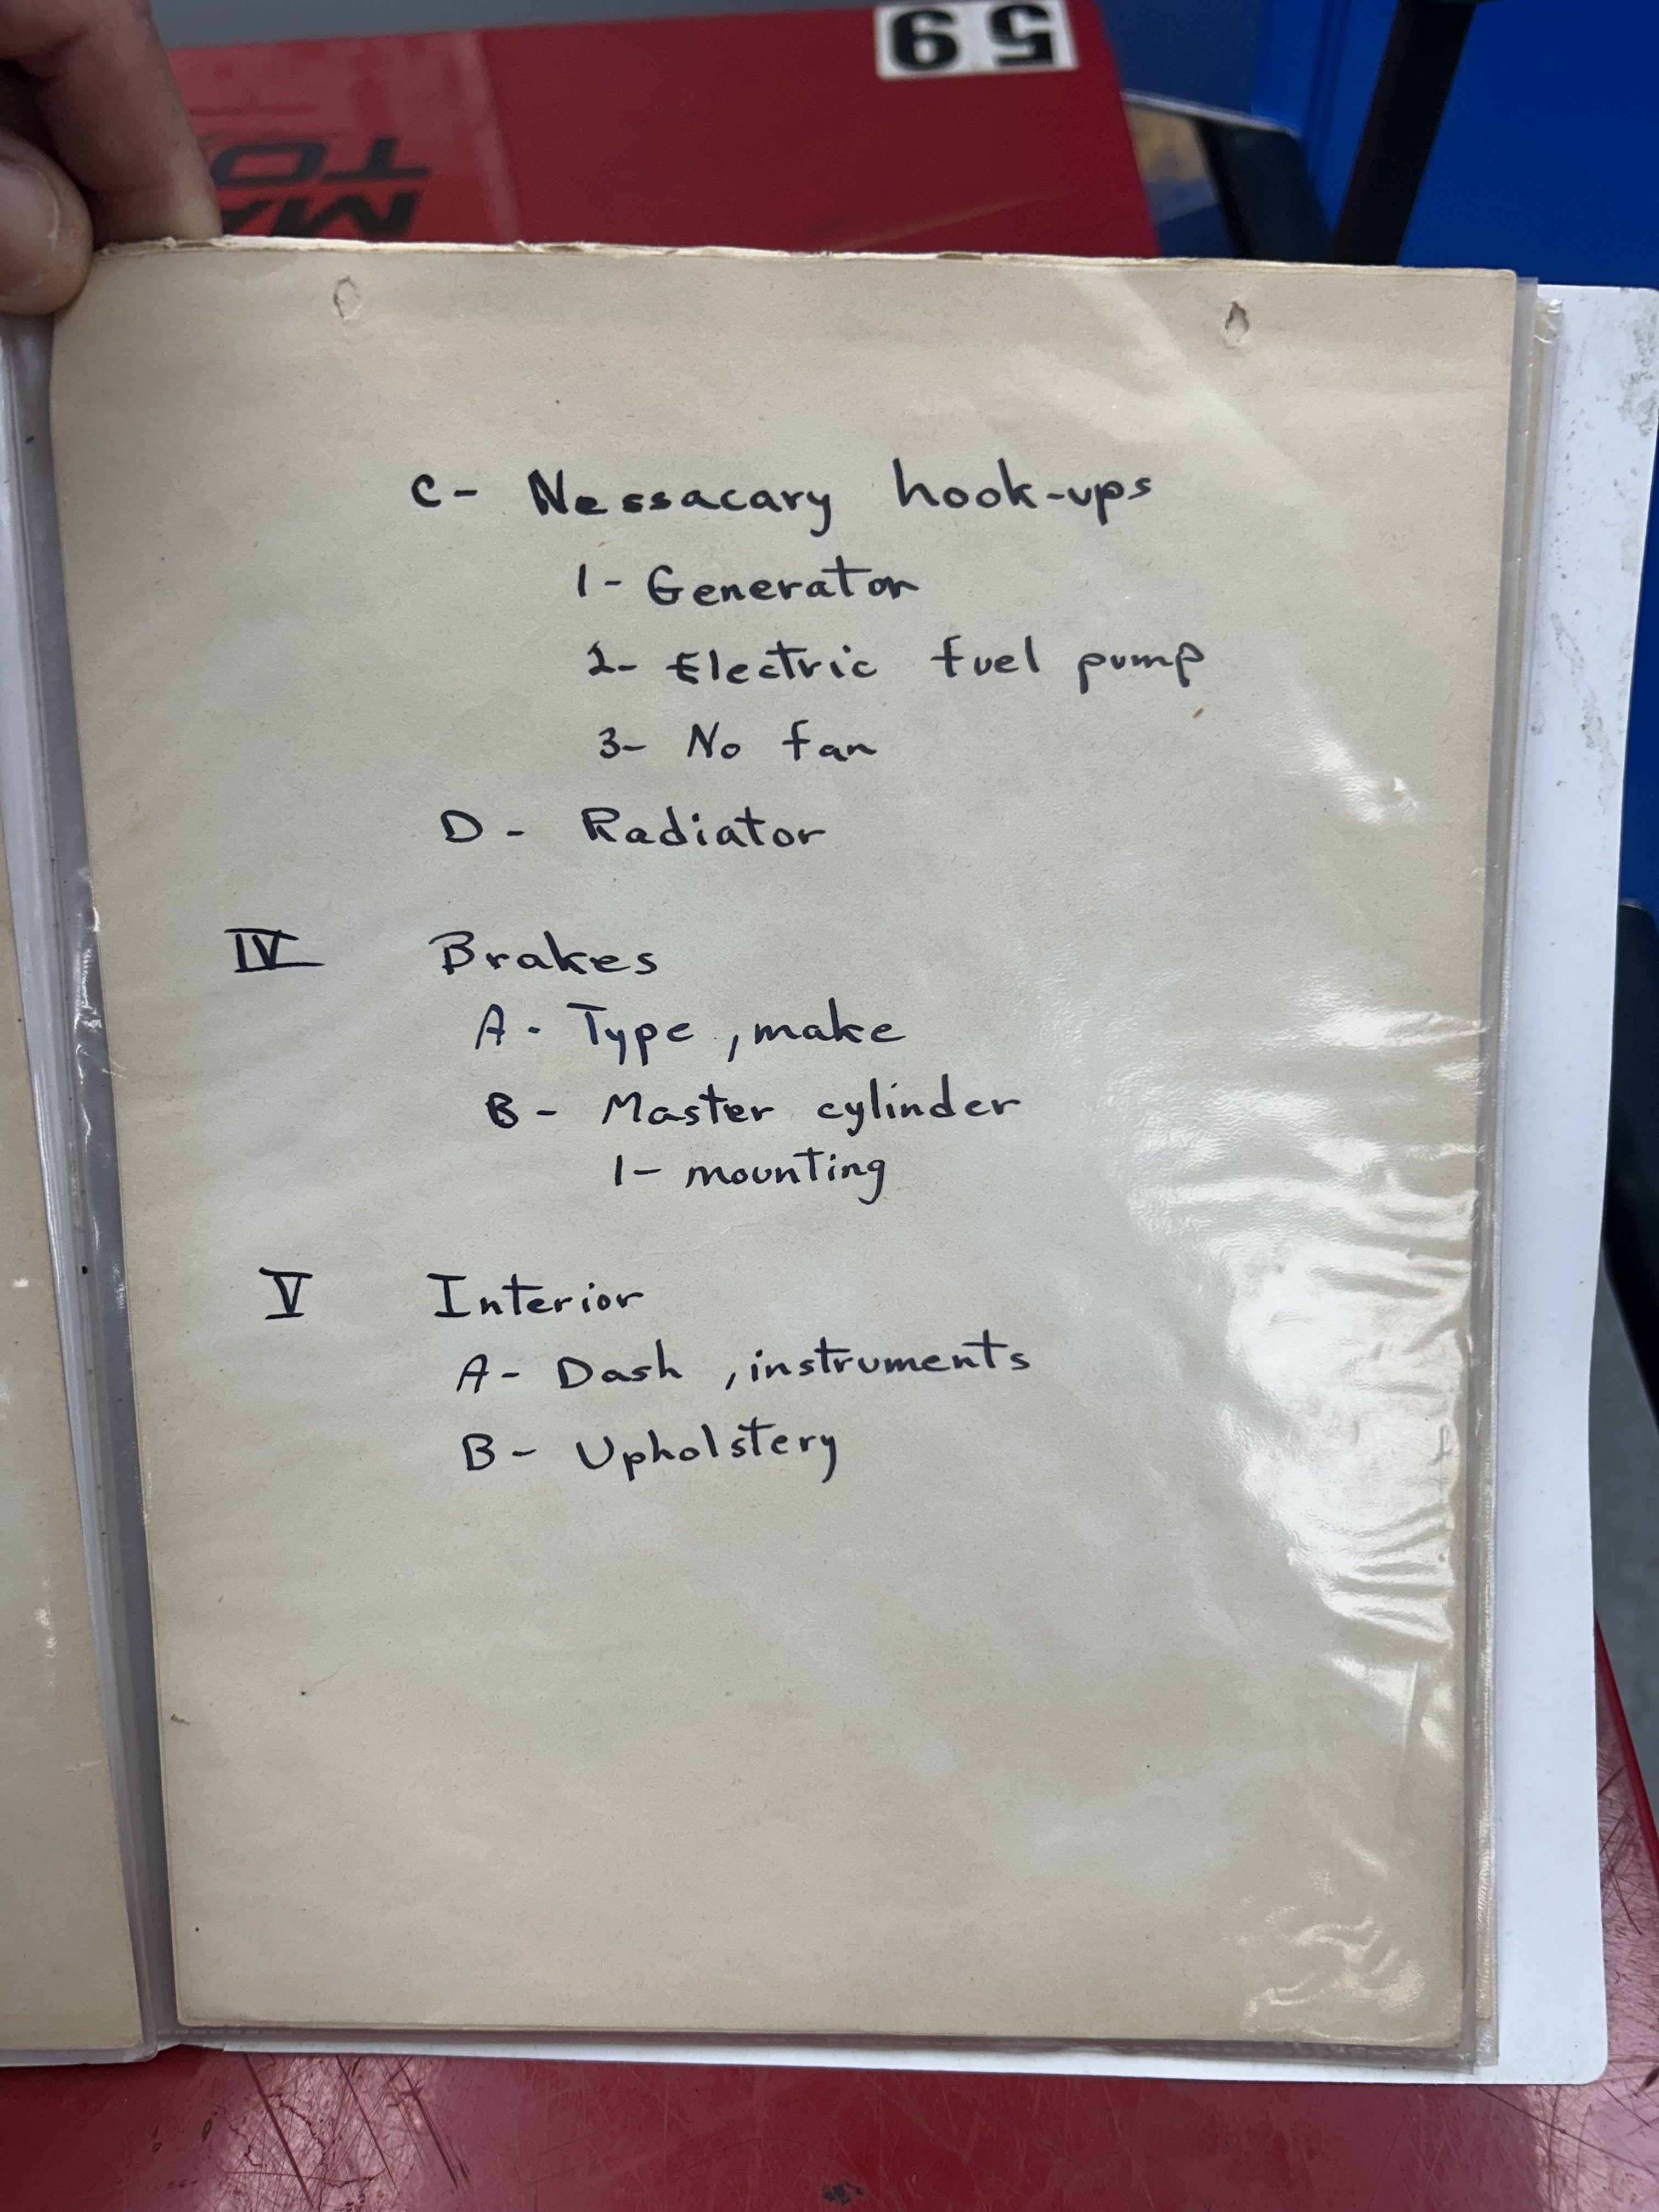 59
MA
TO
C- Nessacary hook-ups
1- Generator
2- Electric fuel pump
3- No fan
D- Radiator
IV Brakes
A- Type, make
B- Master cylinder
1- mounting
V Interior
A- Dash, instruments
B- Upholstery